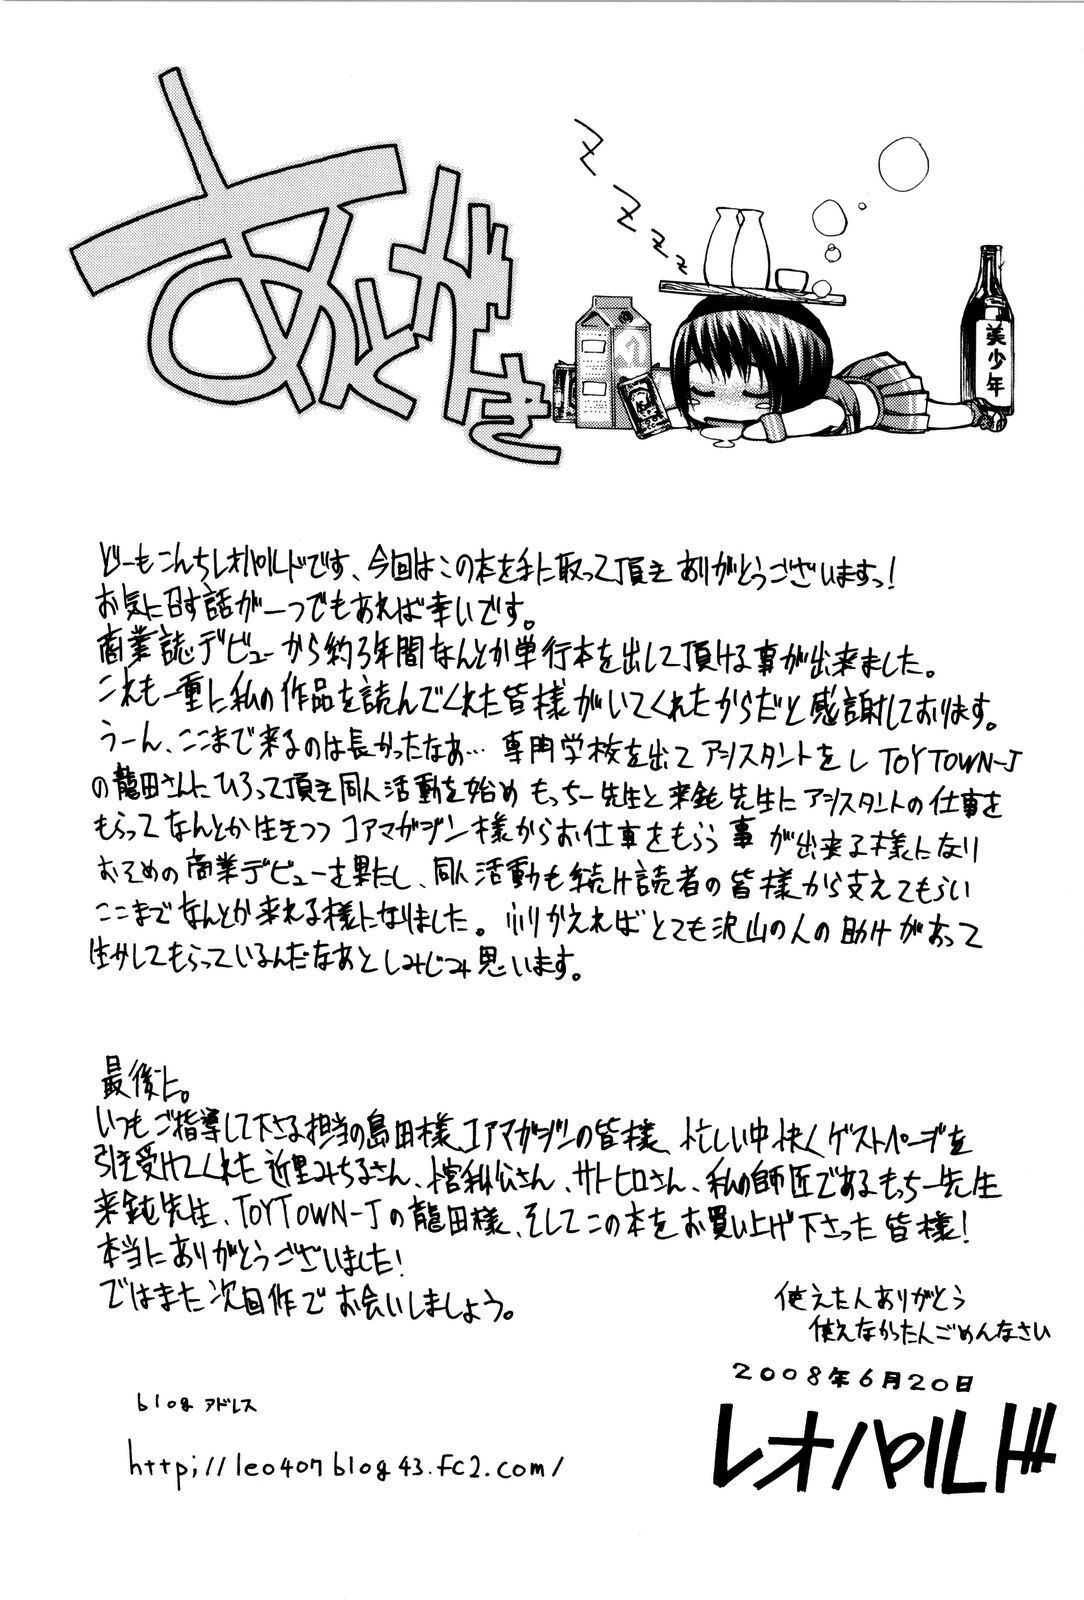 あとがき
美少年
どーもこんちレオパルドです、今回はこの本を手に取って頂きありがとうございますっ!
お気に召す話が一つでもあれば幸いです。
商業誌デビューから約3年間なんとか単行本を出して頂ける事が出来ました。
これも一重に私の作品を読んでくれた皆様がいてくれたからだと感謝しております。
うーん、ここまで来るのは長かったなあ… 専門学校を出て アシスタントをし TOYTOWN-J
の龍田さんにひろって頂き同人活動を始め もっちー先生と来鈍先生にアシスタントの仕事を
もらってなんとか生きつつ コアマガジン様からお仕事をもらう事が出来る様になり
おそめの商業デビューを果たし、同人活動も続け読者の皆様から支えてもらい
ここまでなんとか来れる様になりました。 ふりかえれば とても沢山の人の助けがあって
生かしてもらっているんだなあと しみじみ思います。
最後に。
いつもご指導して下さる担当の島田様、コアマガジンの皆様、忙しい中快くゲストページを
引き受けてくれた近里みちるさん、 サトヒロさん、私の師匠であるもっちー先生
来鈍先生、TOYTOWN-Jの龍田様、そしてこの本をお買い上げ下さった皆様!
本当にありがとうございました!
ではまた次回作でお会いしましょう。
使えたんありがとう
使えなかったんごめんなさい
2008年6月20日
レオパルド
blog アドレス
http;//leo407blog43.fc2.com/